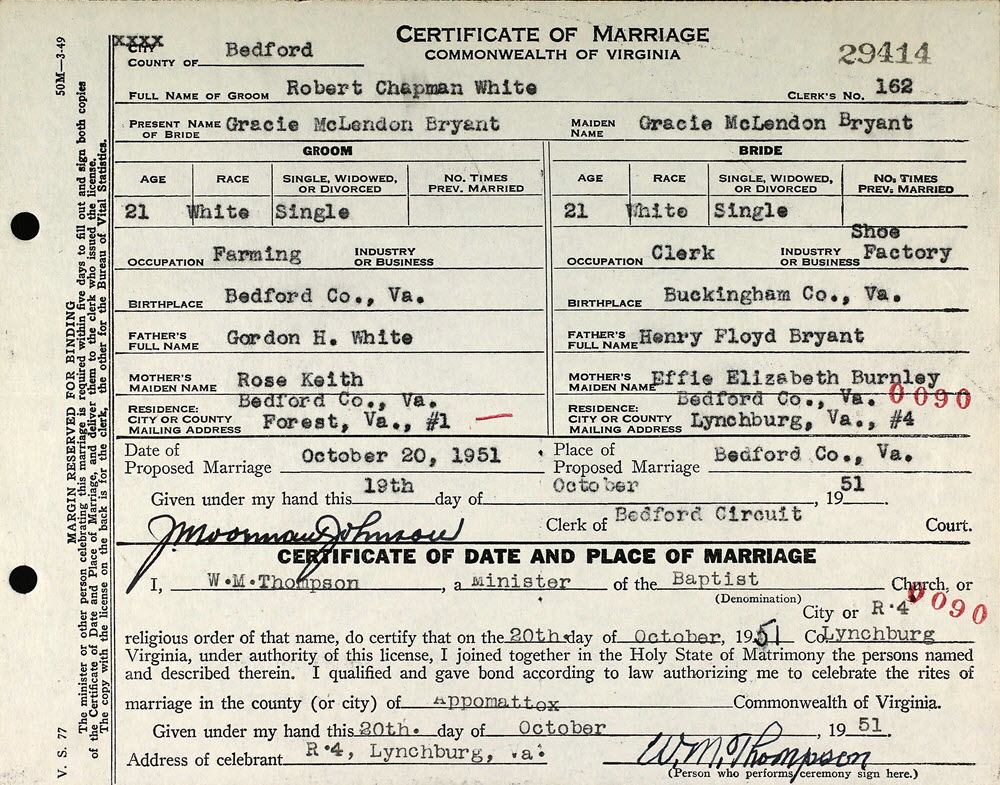 CERTIFICATE OF MARRIAGE
COMMONWEALTH OF VIRGINIA
xxxx
CITY
COUNTY OF Bedford
29414
FULL NAME OF GROOM Robert Chapman White CLERK'S NO. 162
PRESENT NAME OF BRIDE Gracie McLendon Bryant MAIDEN NAME Gracie McLendon Bryant
GROOM BRIDE
AGE RACE SINGLE, WIDOWED, OR DIVORCED NO. TIMES PREV. MARRIED AGE RACE SINGLE, WIDOWED, OR DIVORCED NO. TIMES PREV. MARRIED
21 White Single 21 White Single
OCCUPATION Farming INDUSTRY OR BUSINESS OCCUPATION Clerk INDUSTRY OR BUSINESS Shoe Factory
BIRTHPLACE Bedford Co., Va. BIRTHPLACE Buckingham Co., Va.
FATHER'S FULL NAME Gordon H. White FATHER'S FULL NAME Henry Floyd Bryant
MOTHER'S MAIDEN NAME Rose Keith MOTHER'S MAIDEN NAME Effie Elizabeth Burnley
RESIDENCE: Bedford Co., Va. RESIDENCE: Bedford Co., Va. 0090
CITY OR COUNTY MAILING ADDRESS Forest, Va., #1 CITY OR COUNTY MAILING ADDRESS Lynchburg, Va., #4
Date of Proposed Marriage October 20, 1951 Place of Proposed Marriage Bedford Co., Va.
Given under my hand this 19th day of October, 1951.
J. Moorman Johnson Clerk of Bedford Circuit Court.
CERTIFICATE OF DATE AND PLACE OF MARRIAGE
I, W.M.Thompson, a minister of the Baptist Church, or
(Denomination)
City or R.4 0090
religious order of that name, do certify that on the 20th day of October, 1951 Co. Lynchburg
Virginia, under authority of this license, I joined together in the Holy State of Matrimony the persons named
and described therein. I qualified and gave bond according to law authorizing me to celebrate the rites of
marriage in the county (or city) of Appomattox Commonwealth of Virginia.
Given under my hand this 20th. day of October, 1951.
Address of celebrant R.4, Lynchburg, Va. W.M. Thompson
(Person who performs ceremony sign here.)
50M—3-49
MARGIN RESERVED FOR BINDING
The minister or other person celebrating this marriage is required within five days to fill out and sign both copies
of the Certificate of Date and Place of Marriage, and deliver them to the clerk who issued the license.
The copy with the license on the back is for the clerk, the other for the Bureau of Vital Statistics.
V. S. 77